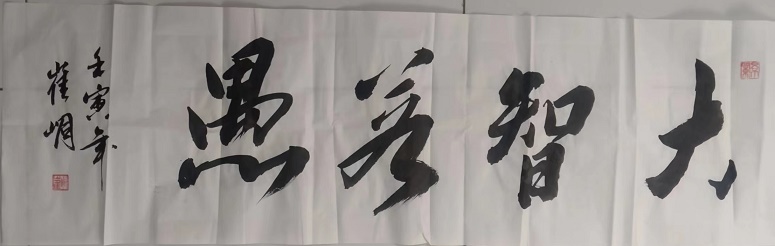 大智若愚
壬寅年
崔嵋